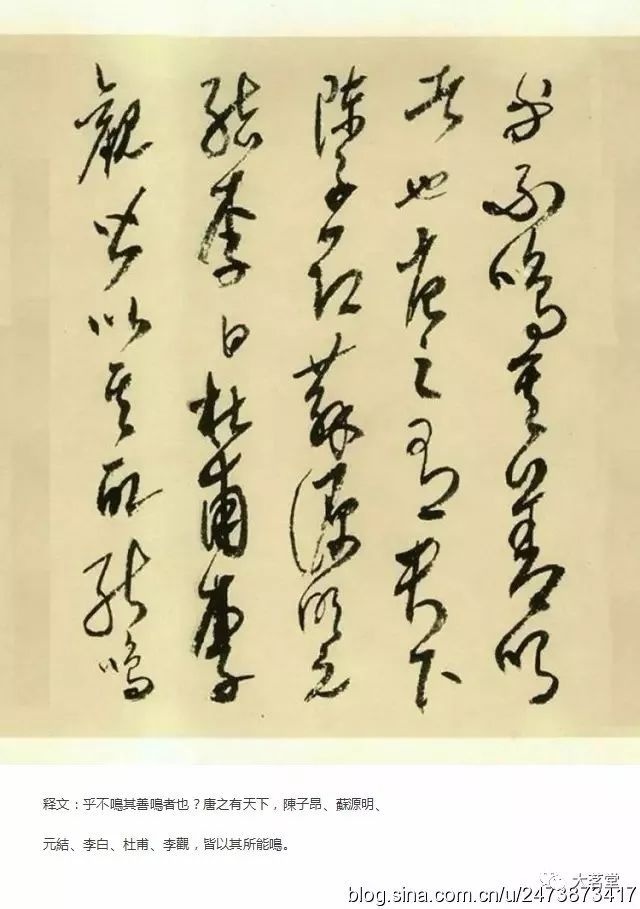 乎不鳴其善鳴
者也唐之有天下
陳子昂蘇源明元
結李白杜甫李
觀皆以其所能鳴
释文：乎不鳴其善鳴者也？唐之有天下，陳子昂、蘇源明、
元結、李白、杜甫、李觀，皆以其所能鳴。
大茗堂
blog.sina.com.cn/u/2473873417